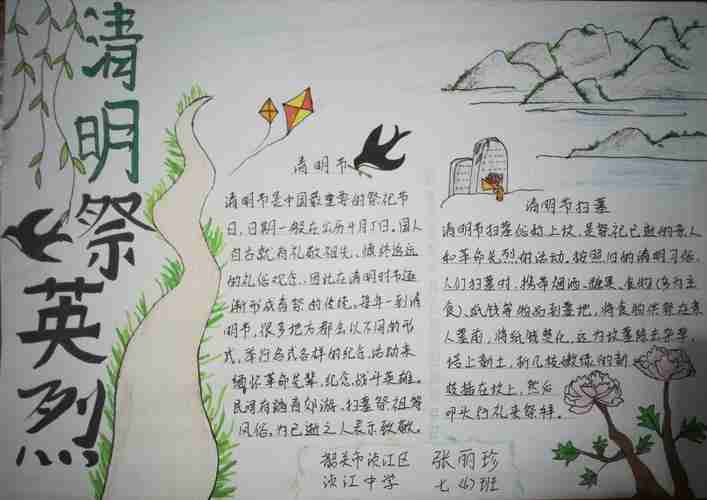 清明祭英烈
清明节
清明节是中国最重要的祭祀节
日，日期一般在公历4月5日。国人
自古就有礼敬祖先、慎终追远
的礼俗观念，因此在清明时节逐
渐形成春祭的传统。每年一到清
明节，很多地方都会以不同的形
式，举行各式各样的纪念活动来
缅怀革命先辈，纪念战斗英雄。
民间有踏青郊游、扫墓祭祖等
风俗，为已逝之人表示致敬。
清明节扫墓
清明节扫墓俗称上坟，是祭祀已逝的亲人
和革命先烈的活动。按照旧的清明习俗，
人们扫墓时，携带烟酒、糖果、食物(多为主
食)、纸钱等物品到墓地，将食物供祭在亲
人墓前，将纸钱焚化，还为坟墓除去杂草，
培上新土，折几枝嫩绿的新
枝插在坟上，然后
叩头行礼来祭拜。
韶关市浈江区 张丽珍
浈江中学 七(4)班